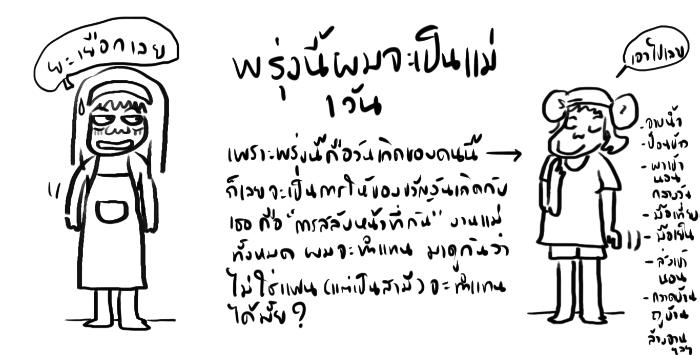 ยะเยือกเลย
พรุ่งนี้ผมจะเป็นแม่
1 วัน
เพราะพรุ่งนี้คือวันเกิดของคนนี้ →
ก็เลยจะเป็นการให้ของขวัญวันเกิดกับ
เธอ คือ "การสลับหน้าที่กัน" งานแม่
ทั้งหมด ผมจะทำแทน มาดูกันว่า
ไม่ใช่แฟน (แต่เป็นสามี) จะทำแทน
ได้มั้ย ?
เอาไปเลย
- อาบน้ำ
- ป้อนข้าว
- พาเข้า
นอน
กลางวัน
- มื้อเที่ยง
- มื้อเย็น
- ส่งเข้า
นอน
- กวาดบ้าน
ถูบ้าน
ล้างจาน
ฯลฯ